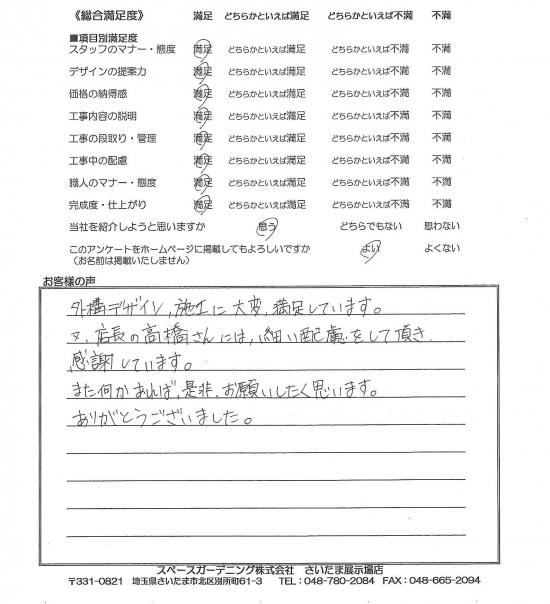 《総合満足度》 満足 どちらかといえば満足 どちらかといえば不満 不満
■項目別満足度
スタッフのマナー・態度 満足 どちらかといえば満足 どちらかといえば不満 不満
デザインの提案力 満足 どちらかといえば満足 どちらかといえば不満 不満
価格の納得感 満足 どちらかといえば満足 どちらかといえば不満 不満
工事内容の説明 満足 どちらかといえば満足 どちらかといえば不満 不満
工事の段取り・管理 満足 どちらかといえば満足 どちらかといえば不満 不満
工事中の配慮 満足 どちらかといえば満足 どちらかといえば不満 不満
職人のマナー・態度 満足 どちらかといえば満足 どちらかといえば不満 不満
完成度・仕上がり 満足 どちらかといえば満足 どちらかといえば不満 不満
当社を紹介しようと思いますか 思う どちらでもない 思わない
このアンケートをホームページに掲載してもよろしいですか よい よくない
（お名前は掲載いたしません）
お客様の声
外構デザイン,施工に大変,満足しています。
又、店長の高橋さんには,細い配慮をして頂き
感謝しています。
また何かあれば,是非,お願いしたく思います。
ありがとうございました。
スペースガーデニング株式会社 さいたま展示場店
〒331-0821 埼玉県さいたま市北区別所町61-3 TEL:048-780-2084 FAX:048-665-2094